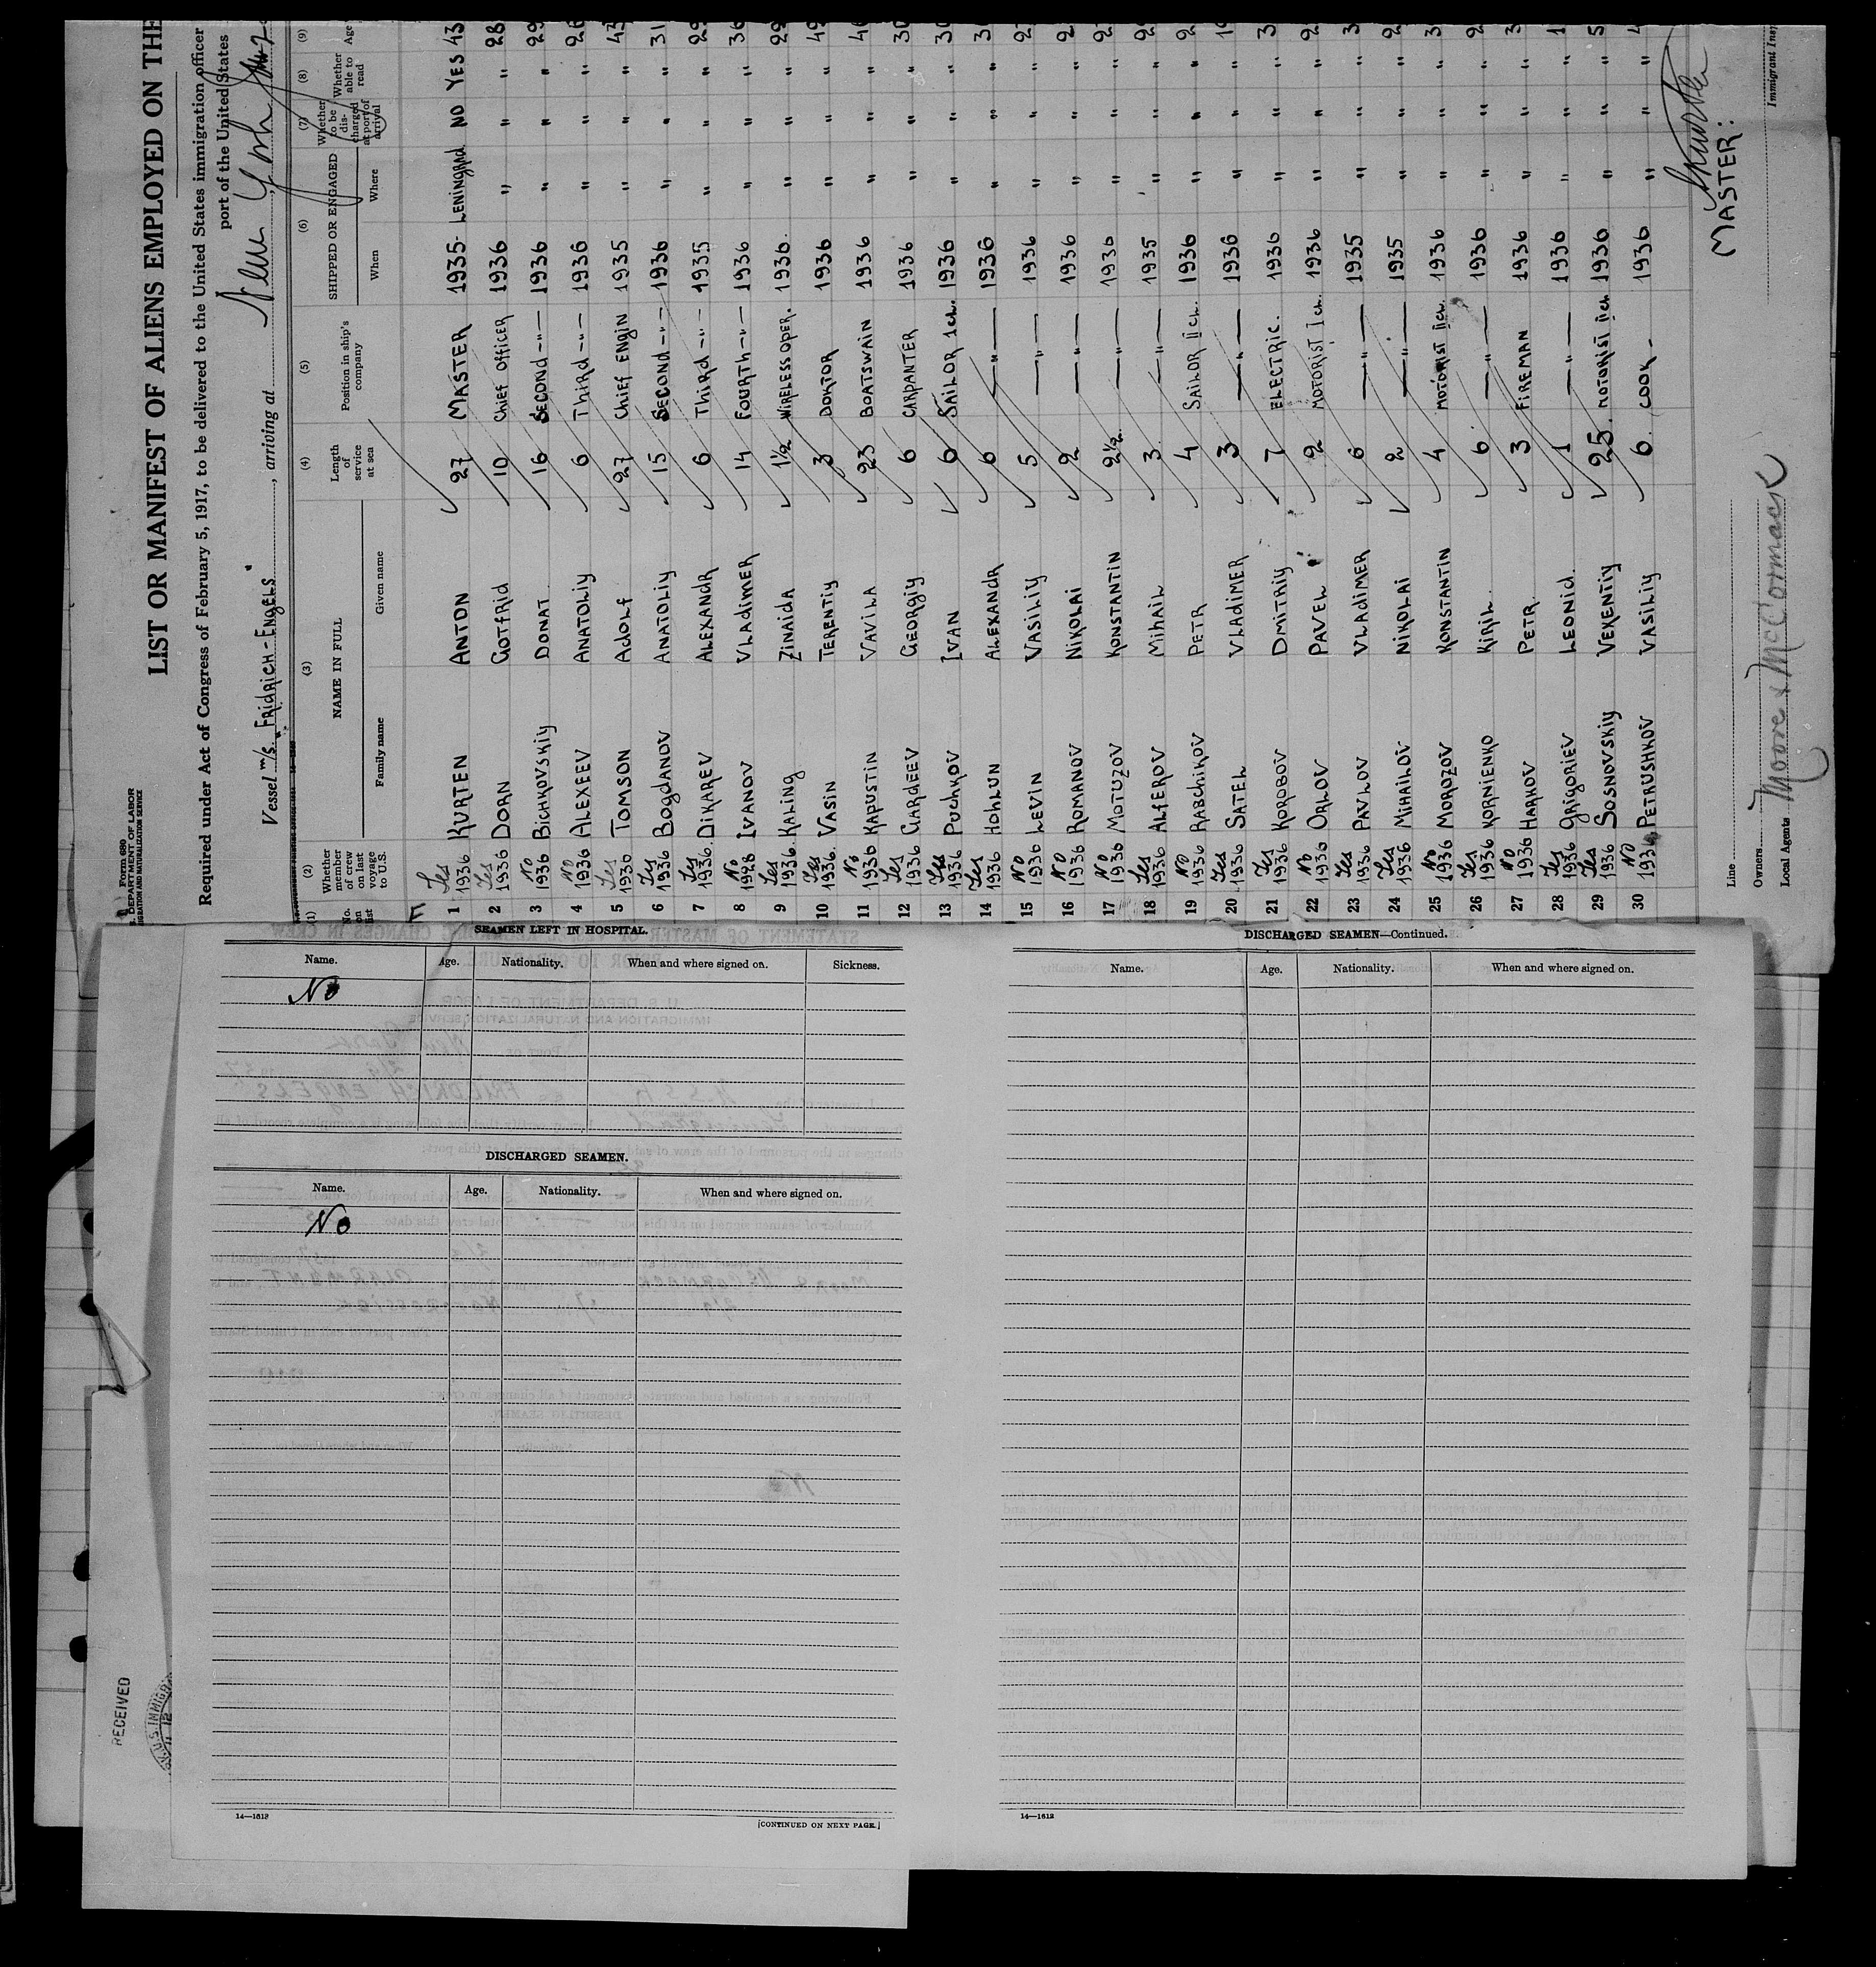 Form 680
DEPARTMENT OF LABOR
IMMIGRATION AND NATURALIZATION SERVICE
LIST OR MANIFEST OF ALIENS EMPLOYED ON THE
Required under Act of Congress of February 5, 1917, to be delivered to the United States immigration officer
port of the United States
Vessel m/s. Fridrich-Engels, arriving at New York
(1) (2) (3) (4) (5) (6) (7) (8) (9)
No. on list
Whether member of crew on last voyage to U.S.
NAME IN FULL
Family name Given name
Length of service at sea
Position in ship's company
SHIPPED OR ENGAGED
When Where
Whether to be discharged at port of arrival
Whether able to read
Age
1 Yes 1936 KURTEN ANTON 27 MASTER 1935 LENINGRAD NO YES 43
2 Yes 1936 DORN GOTFRID 10 CHIEF OFFICER 1936 " " " 28
3 No 1936 BICHKOVSKIY DONAT 16 SECOND -"- 1936 " " " 29
4 No 1936 ALEXEEV ANATOLIY 6 THIRD -"- 1936 " " " 26
5 Yes 1936 TOMSON ADOLF 27 CHIEF ENGIN 1935 " " " 43
6 Yes 1936 BOGDANOV ANATOLIY 15 SECOND -"- 1936 " " " 31
7 Yes 1936 DIKAREV ALEXANDR 6 THIRD -"- 1935 " " " 29
8 No 1928 IVANOV VLADIMER 14 FOURTH -"- 1936 " " " 36
9 Yes 1936 KALING ZINAIDA 1½ WIRELESS OPER. 1936 " " " 29
10 Yes 1936 VASIN TERENTIY 3 DOKTOR 1936 " " "
11 No 1936 KAPUSTIN VAVILA 23 BOATSWAIN 1936 " " "
12 Yes 1936 GARDEEV GEORGIY 6 CARPANTER 1936 " " "
13 Yes 1936 PUCHKOV IVAN 6 SAILOR 1cl. 1936 " " "
14 Yes 1936 HOHLUN ALEXANDR 6 -"- 1936 " " "
15 No 1936 LEVIN VASILIY 5 -"- 1936 " " "
16 No 1936 ROMANOV NIKOLAI 2 -"- 1936 " " "
17 No 1936 MOTUZOV KONSTANTIN 2½ -"- 1936 " " "
18 Yes 1936 ALFEROV MIHAIL 3 -"- 1935 " " "
19 No 1936 RABCHIKOV PETR 4 SAILOR IIcl. 1936 " " "
20 Yes 1936 SATEL VLADIMER 3 -"- 1936 " " "
21 Yes 1936 KOROBOV DMITRIY 7 ELECTRIC. 1936 " " "
22 No 1936 ORLOV PAVEL 2 MOTORIST Icl. 1936 " " "
23 Yes 1936 PAVLOV VLADIMER 6 -"- 1935 " " "
24 Yes 1936 MIHAILOV NIKOLAI 2 -"- 1935 " " "
25 No 1936 MOROZOV KONSTANTIN 4 MOTORIST IIcl. 1936 " " "
26 Yes 1936 KORNIENKO KIRIL 6 -"- 1936 " " "
27 No 1936 HARKOV PETR 3 FIREMAN 1936 " " "
28 Yes 1936 GRIGORIEV LEONID 1 -"- 1936 " " "
29 Yes 1936 SOSNOVSKIY VEKENTIY 25 MOTORIST IIcl. 1936 " " "
30 No 1936 PETRUSHKOV VASILIY 6 COOK - 1936 " " "
MASTER:
Immigrant Insp
Line
Owners
Local Agents Moore & McCormack
SEAMEN LEFT IN HOSPITAL.
Name. Age. Nationality. When and where signed on. Sickness.
No
DISCHARGED SEAMEN.
Name. Age. Nationality. When and where signed on.
No
14—1612
[CONTINUED ON NEXT PAGE.]
DISCHARGED SEAMEN—Continued.
Name. Age. Nationality. When and where signed on.
14—1612
RECEIVED
U.S. IMMIGRA